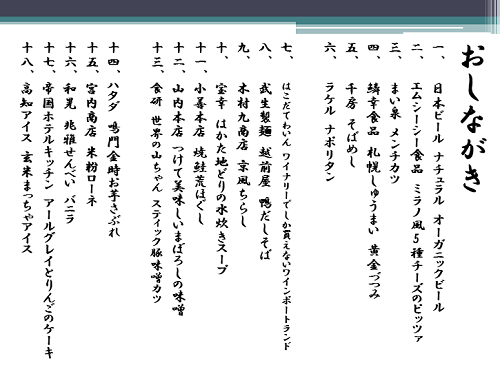 おしながき
一、 日本ビール ナチュラル オーガニックビール
二、 エムシーシー食品 ミラノ風5種チーズのピッツァ
三、 まい泉 メンチカツ
四、 鱗幸食品 札幌しゅうまい 黄金づつみ
五、 千房 そばめし
六、 ラケル ナポリタン
七、 はこだてわいん ワイナリーでしか買えないワインポートランド
八、 武生製麺 越前屋 鴨だしそば
九、 木村九商店 京風ちらし
十、 宝幸 はかた地どりの水炊きスープ
十一、 小善本店 焼鮭荒ほぐし
十二、 山内本店 つけて美味しいまぼろしの味噌
十三、 食研 世界の山ちゃん スティック豚味噌カツ
十四、 ハタダ 鳴門金時お芋さぶれ
十五、 宮内商店 米粉ローネ
十六、 和晃 兆雅せんべい バニラ
十七、 帝国ホテルキッチン アールグレイとりんごのケーキ
十八、 高知アイス 玄米まっちゃアイス